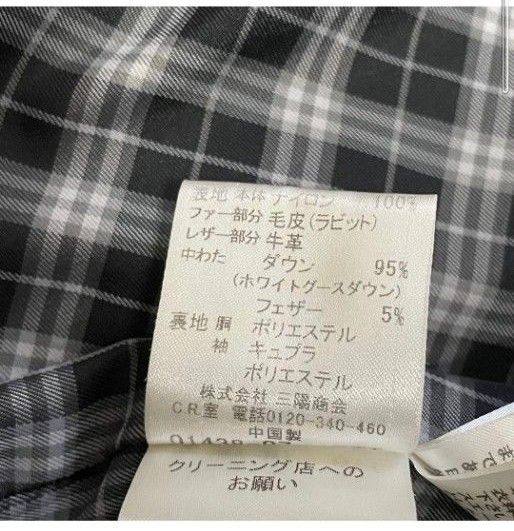 表地 本体 ナイロン 100%
ファー部分 毛皮(ラビット)
レザー部分 牛革
中わた ダウン 95%
(ホワイトグースダウン)
フェザー 5%
裏地 胴 ポリエステル
袖 キュプラ
ポリエステル
株式会社 三陽商会
CR室 電話0120-340-460
中国製
クリーニング店への
お願い